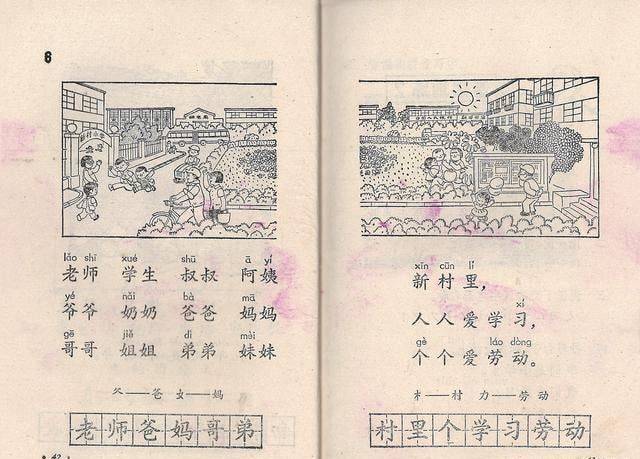 6
lǎo shī xué shū ā yí
老师 学生 叔叔 阿姨
yé nǎi bà mā
爷爷 奶奶 爸爸 妈妈
gē jiě dì mèi
哥哥 姐姐 弟弟 妹妹
父——爸 女——妈
老师爸妈哥弟
42
xīn cūn lǐ
新村里，
xí
人人爱学习，
gè láo dòng
个个爱劳动。
木——村 力——劳动
村里个学习劳动